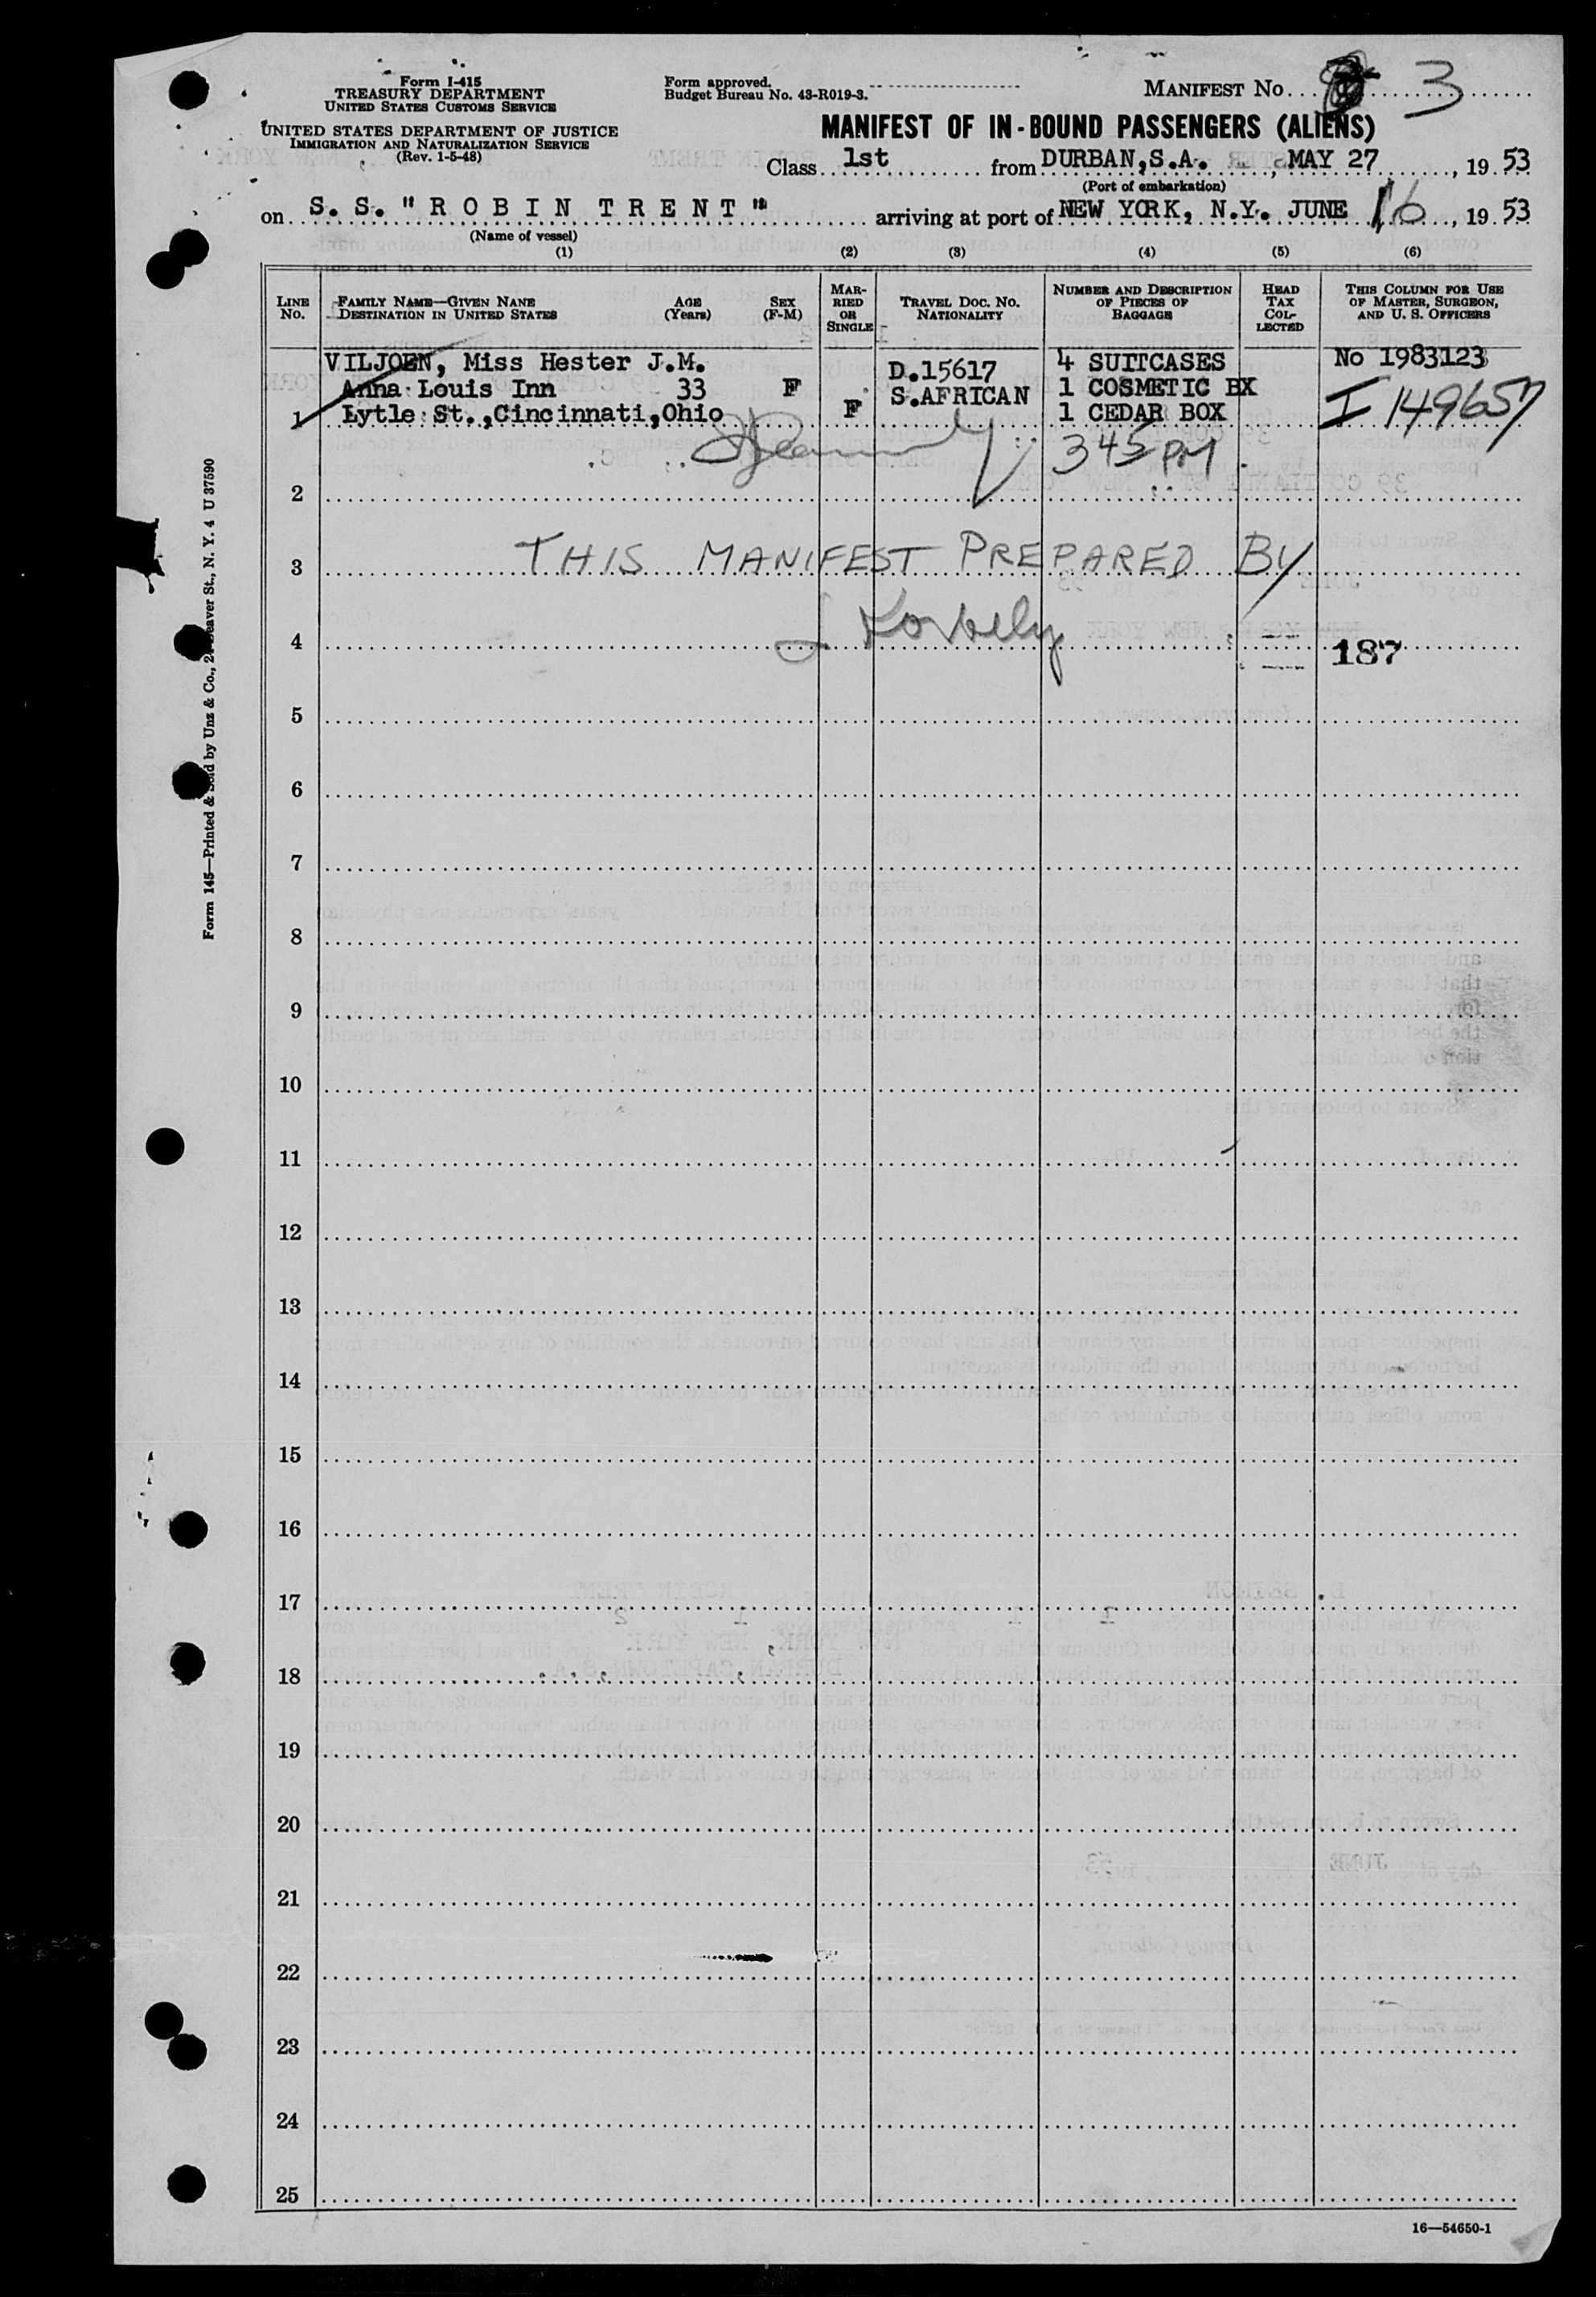 Form I-415
TREASURY DEPARTMENT
UNITED STATES CUSTOMS SERVICE
UNITED STATES DEPARTMENT OF JUSTICE
IMMIGRATION AND NATURALIZATION SERVICE
(Rev. 1-5-48)
Form approved.
Budget Bureau No. 43-R019-3.
MANIFEST No. 3
MANIFEST OF IN-BOUND PASSENGERS (ALIENS)
Class 1st from DURBAN, S.A., MAY 27, 1953
(Port of embarkation)
on S. S. "ROBIN TRENT" arriving at port of NEW YORK, N.Y. JUNE 16, 1953
(Name of vessel)
(1) (2) (3) (4) (5) (6)
LINE No. FAMILY NAME—GIVEN NANE DESTINATION IN UNITED STATES AGE (Years) SEX (F-M) MARRIED OR SINGLE TRAVEL DOC. NO. NATIONALITY NUMBER AND DESCRIPTION OF PIECES OF BAGGAGE HEAD TAX COLLECTED THIS COLUMN FOR USE OF MASTER, SURGEON, AND U. S. OFFICERS
VILJOEN, Miss Hester J.M. D.15617 4 SUITCASES No 1983123
Anna Louis Inn 33 F S.AFRICAN 1 COSMETIC BX
1 Lytle St.,Cincinnati,Ohio F 1 CEDAR BOX I 149657
345 PM
2
3 THIS MANIFEST PREPARED BY
4 J Korbely 187
5
6
7
8
9
10
11
12
13
14
15
16
17
18
19
20
21
22
23
24
25
16—54650-1
Form 145—Printed & Sold by Unz & Co., Beaver St., N. Y. 4 U 37590